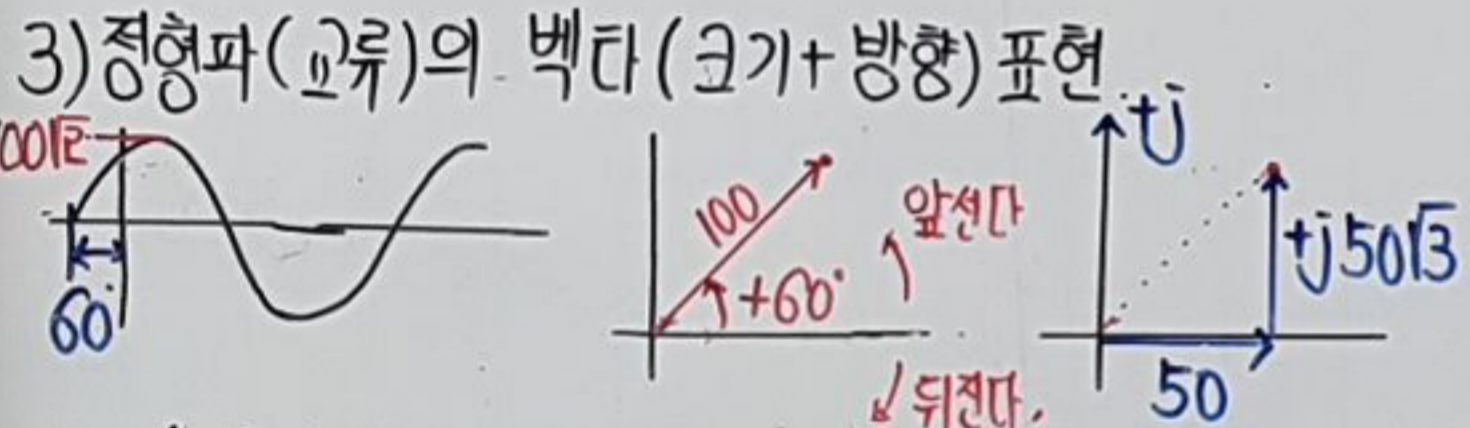 3) 정형파(교류)의 벡타(크기+방향) 표현.
00√2
60°
100
+60°
앞선다
뒤진다.
+j
+j50√3
50